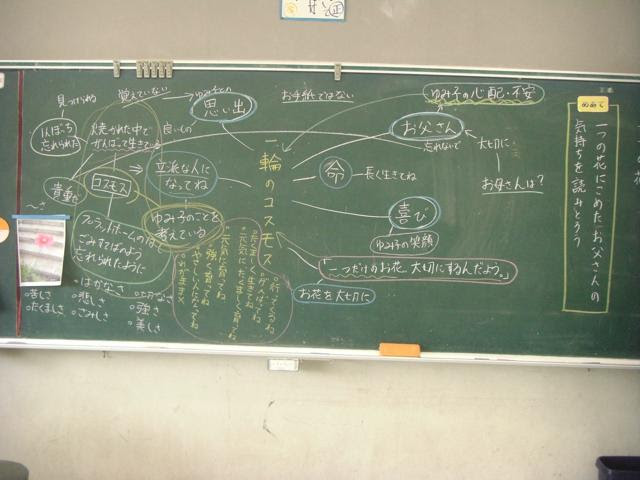 めあて
一つの花にこめたお父さんの
気持ちを読みとろう
ゆみ子の心配・不安
お手紙ではない
お父さん
忘れないで
大切に
お母さんは?
命
長く生きてね
喜び
ゆみ子の笑顔
「一つだけのお花、大切にするんだよう。」
お花を大切に
一輪のコスモス
ゆみ子との
思い出
覚えていない
見つけられる
一人ぼっち
忘れられた
焼かれた中で
がんばって生きている
良い人の
立派な人に
なってね
貴重な
コスモス
ゆみ子のことを
考えている
プラットホームのはしっぽ
ごみすてばのよう
忘れられたように
行ってくるね
がんばってね
たくましく生きてね
元気にたくましく育ってね
元気に育ってね
強く育ってね
やさしい人になってね
はかなさ
苦しさ
悲しさ
たくましさ
さみしさ
強さ
美しさ